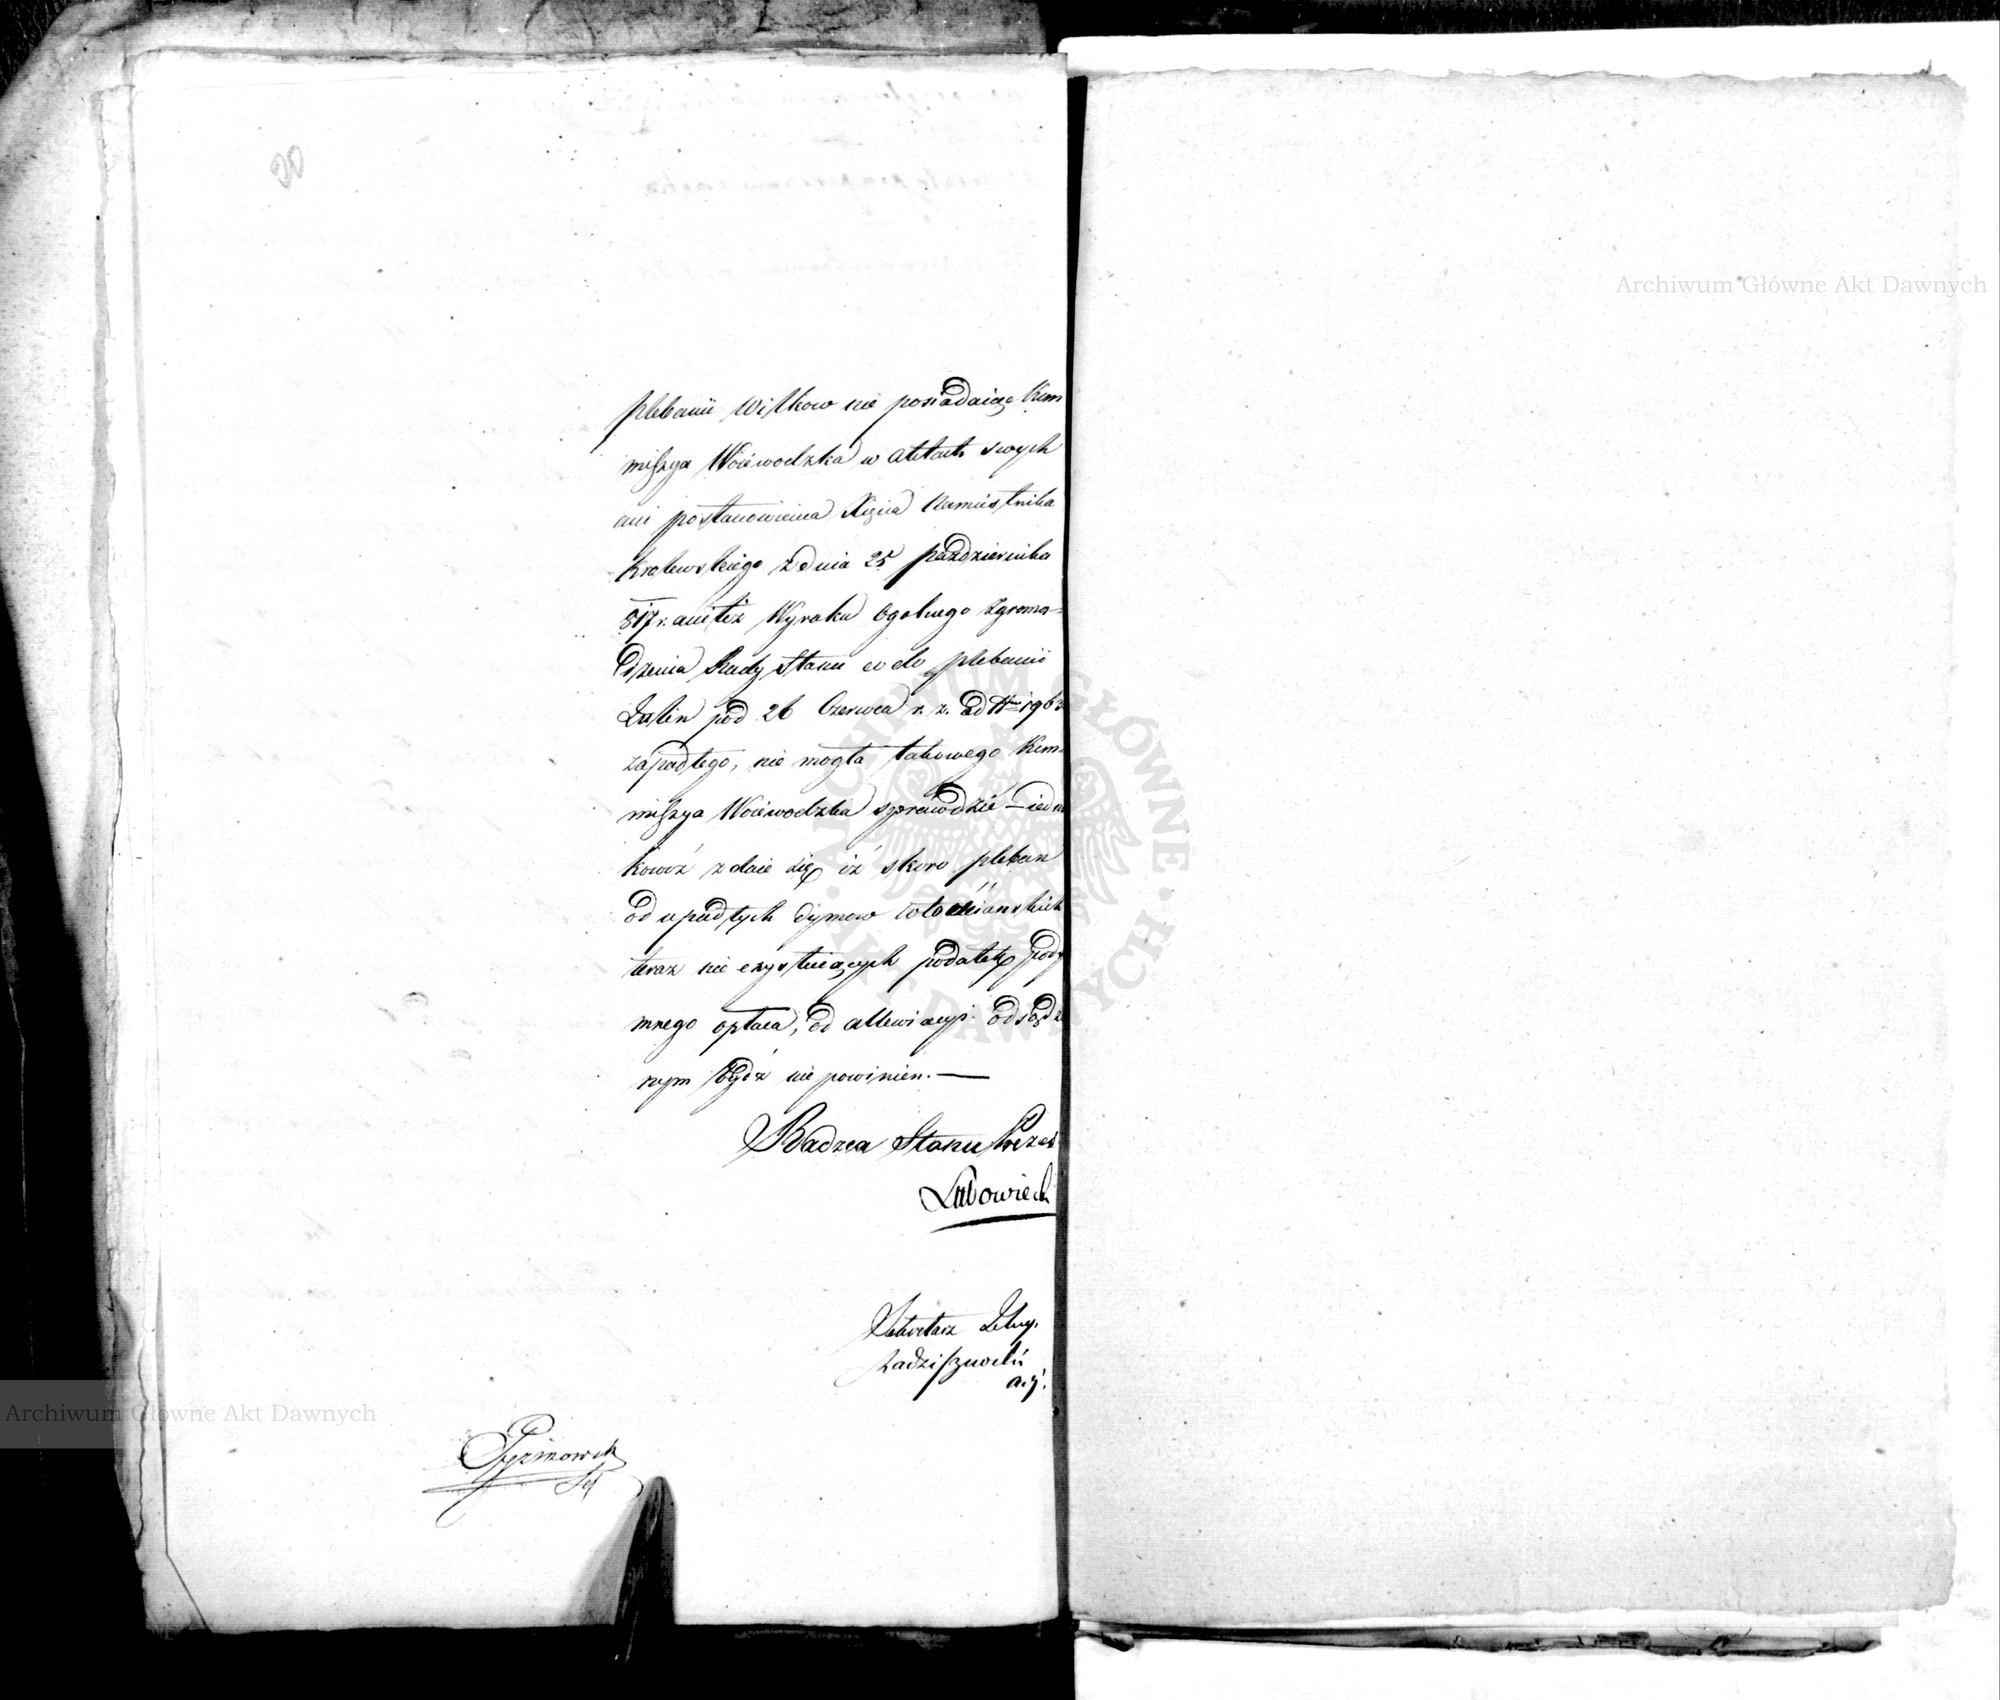 20
plebanii Witkow nie posiadaiąc Kom
missya Woiewodzka w aktach swych
ani postanowienia Xięcia Namiestnika
Krolewskiego z dnia 25 Pazdziernika
817 r. ani też Wyroku Ogolnego Zgroma-
dzenia Rady Stanu co do plebanii
pod 26 Czerwca r. z. ad Nr 1963
zapadłego, nie mogła takowego Kom-
missya Woiewodzka sprawdzić – iedna
kowoż zdaie się iż skoro pleban
od upadłych dymow włościańskich
teraz nie exystuiących podatek pody
mnego opłaca, od allewiacyi odsądzo
nym bydź nie powinien. —
Radzca Stanu Prezes
Sekretarz Jlny.
Radziszewski
Archiwum Główne Akt Dawnych
Archiwum Główne Akt Dawnych
ARCHIWUM GŁÓWNE AKT DAWNYCH